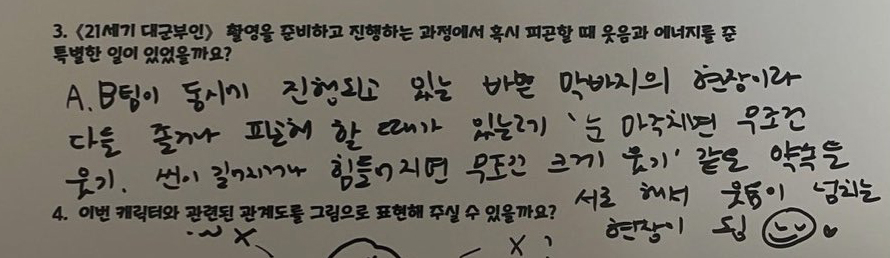 3. 〈21세기 대군부인〉 촬영을 준비하고 진행하는 과정에서 혹시 피곤할 때 웃음과 에너지를 준
특별한 일이 있었을까요?
A,B팀이 동시에 진행되고 있는 바쁜 막바지의 현장이라
다들 졸거나 피곤해 할 때가 있는데 '눈 마주치면 무조건
웃기. 씬이 길어지거나 힘들어지면 무조건 크게 웃기' 같은 약속들
서로 해서 웃음이 넘치는
현장이 됨
4. 이번 캐릭터와 관련된 관계도를 그림으로 표현해 주실 수 있을까요?
X
X